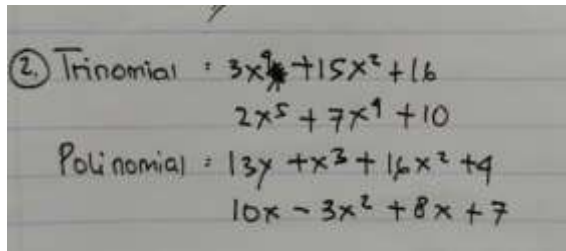 ② Trinomial : 3x⁹ + 15x² + 16
2x⁵ + 7x⁹ + 10
Polinomial : 13y + x³ + 16x² + 4
10x - 3x² + 8x + 7